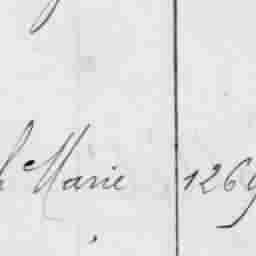 Marie 1269